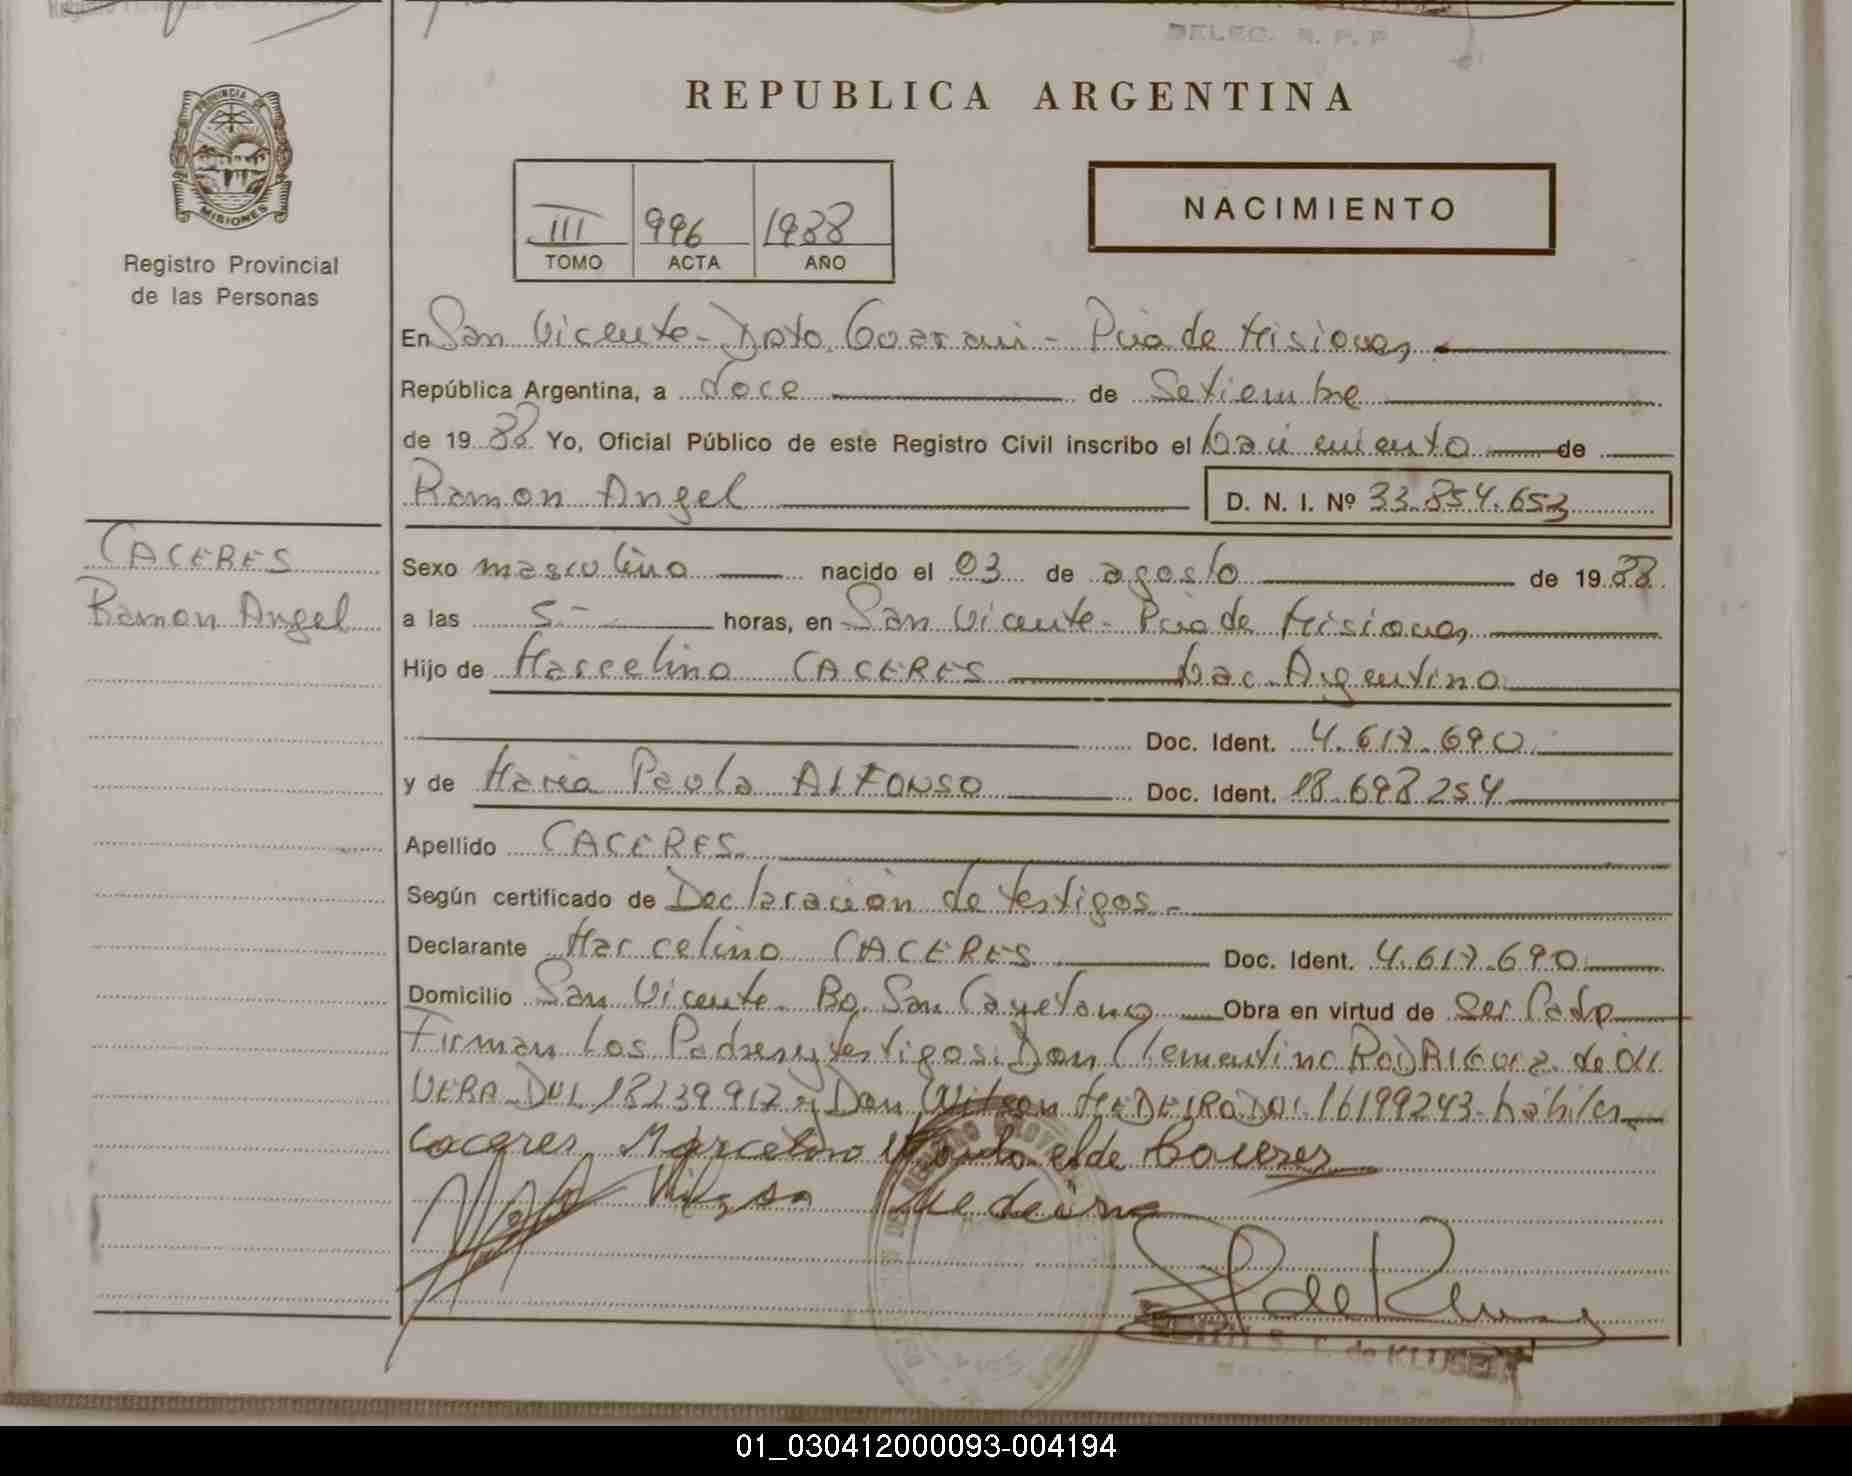 DELEG. R. P. P
REPUBLICA ARGENTINA
PROVINCIA DE
MISIONES
Registro Provincial
de las Personas
III 996 1988
TOMO ACTA AÑO
NACIMIENTO
En San Vicente - Dpto. Guarani - Pcia de Misiones
República Argentina, a doce de Setiembre
de 1988 Yo, Oficial Público de este Registro Civil inscribo el Nacimiento de
Ramon Angel D. N. I. Nº 33.854.653
CACERES
Ramon Angel
Sexo masculino nacido el 03 de agosto de 1988
a las 5.- horas, en San Vicente - Pcia de Misiones
Hijo de Marcelino CACERES Nac. Argentino
Doc. Ident. 4.617.690
y de Maria Paula ALFONSO Doc. Ident. 18.698.254
Apellido CACERES
Según certificado de Declaración de testigos -
Declarante Marcelino CACERES Doc. Ident. 4.617.690
Domicilio San Vicente - Bo. San Cayetano Obra en virtud de ser Padre
Firman los Padres y testigos: Don Clementino RODRIGUEZ de OLI
VERA DNI 18239917 y Don Wilson MEDEIRO DNI 16199243 - hábiles
Caceres Marcelino de Caceres
Medeiro
S. F. de KLUSE
01_030412000093-004194